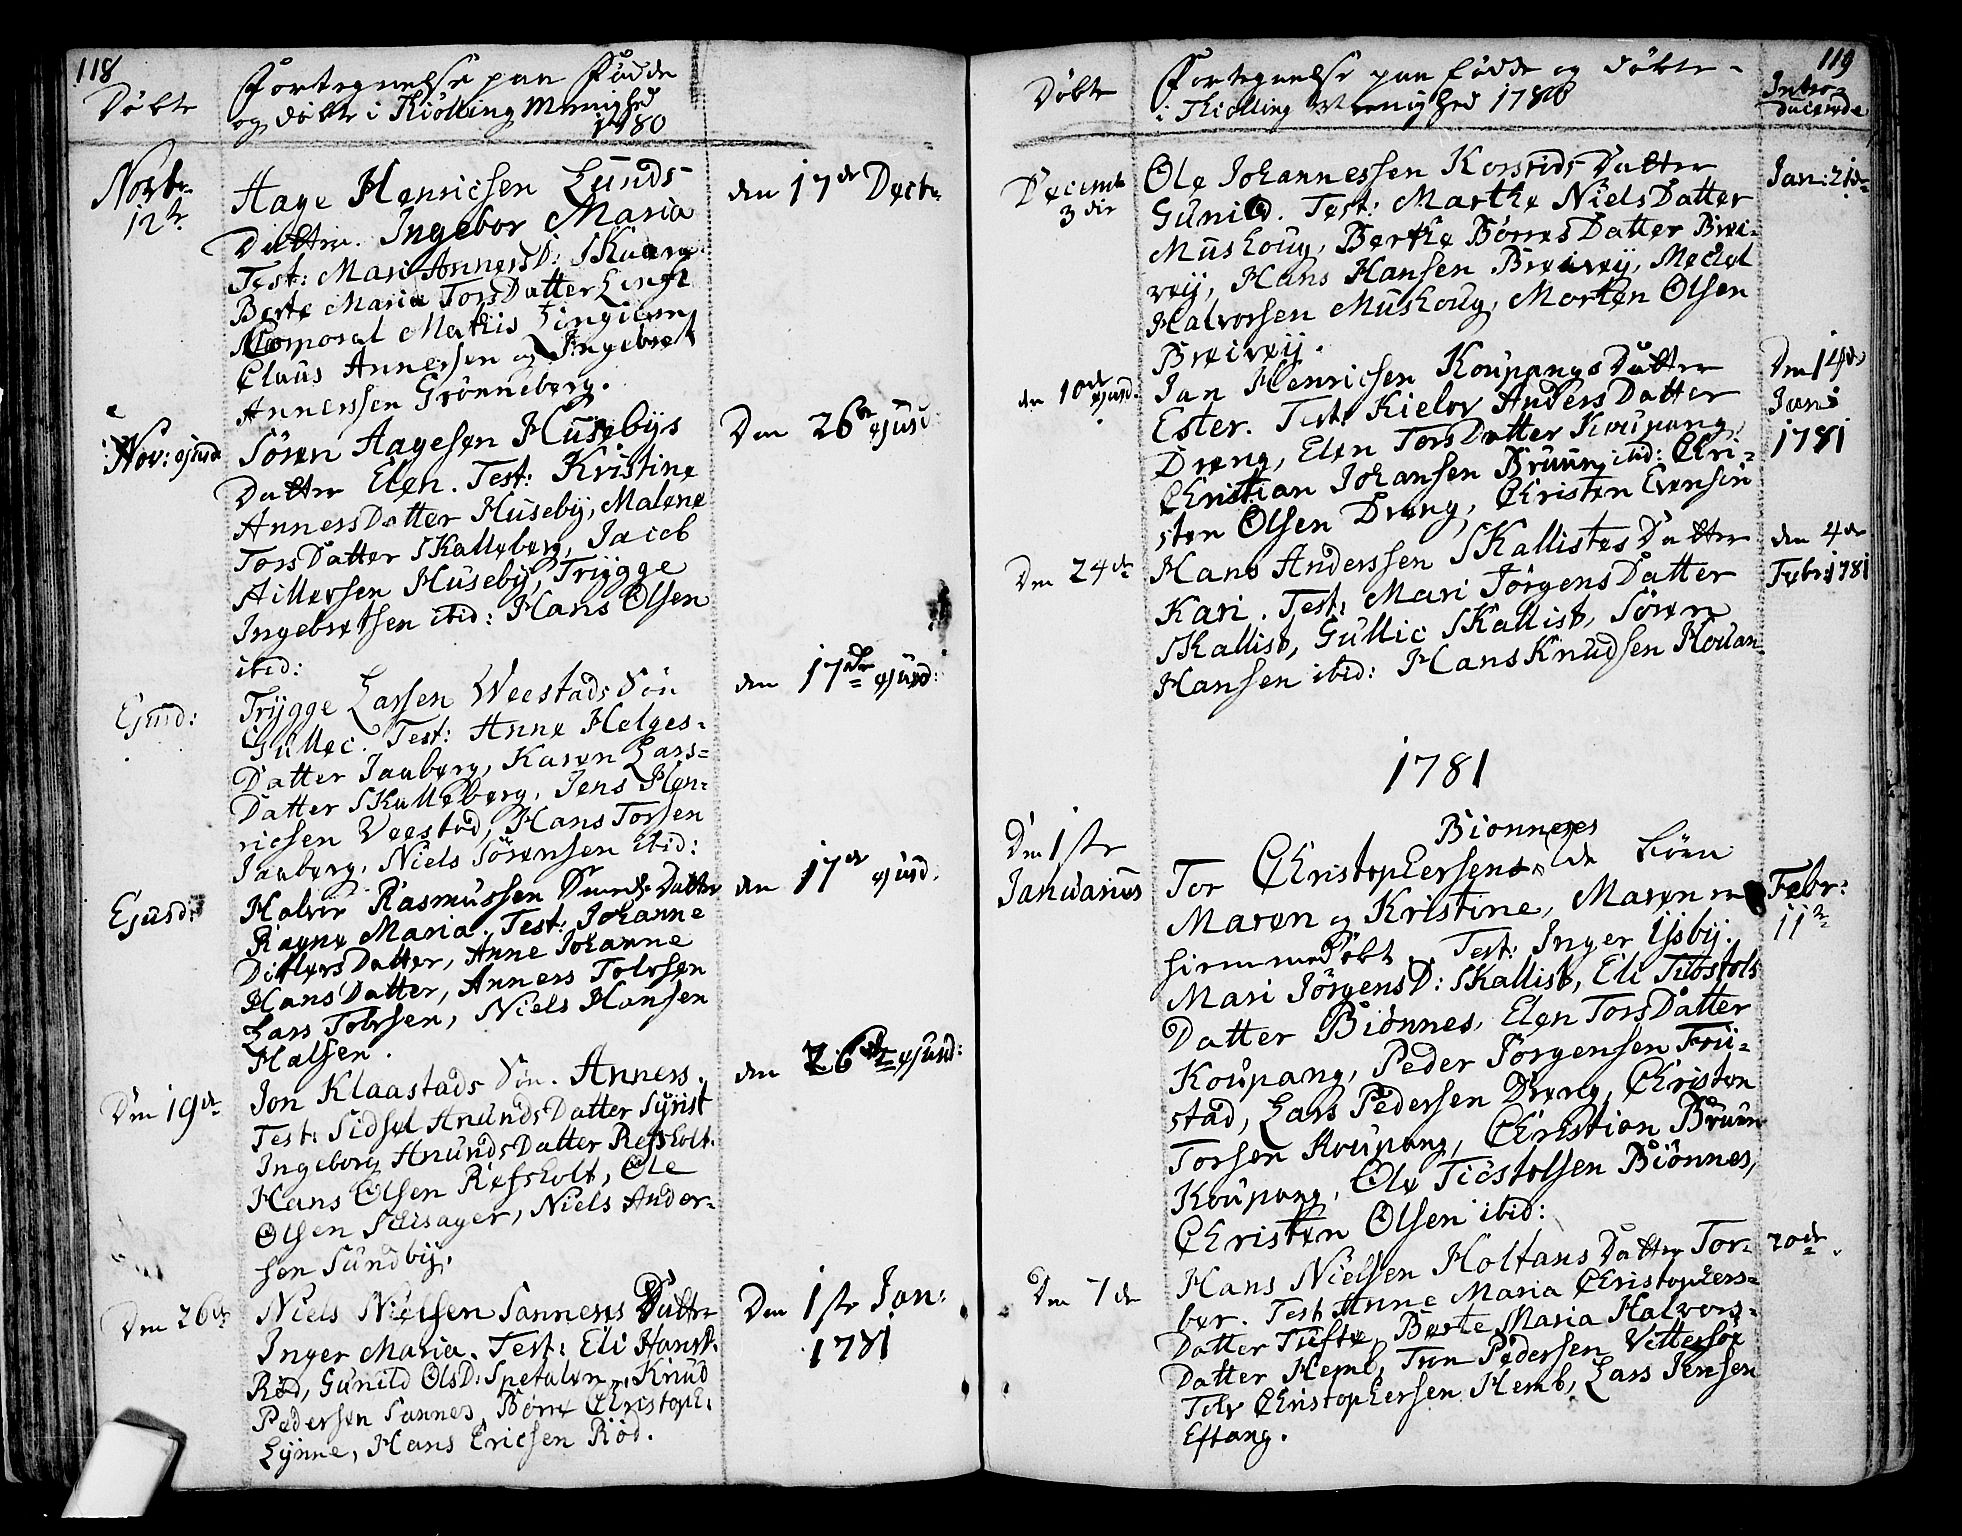 118
Døbte
Fortegnelse paa Fødde
og døbte i Kiølling Menighed
1780
Novbr:
12te
Aage Henricsen Lunds
Datter. Ingebor Maria
Test: Mari AnnersD: Skaare
Berte Maria TorsDatter
Corporal Mathis
Claus Annersen og Ingebret
Annerssen Grønneberg.
den 17de Decbr
Nov: ejusd
Søren Aagesen Husebys
Datter Elen. Test: Kristine
AnnersDatter Huseby, Malene
TorsDatter Skalleberg, Jacob
Aillersen Huseby, Trygge
Ingebretsen ibid: Hans Olsen
ibid:
Den 26de ejusd:
Ejusd:
Trygge Larsen Weestads Søn
Gullec. Test: Anne Helges-
Datter Jauberg, Karen Lars-
Datter Skalleberg, Jens Hen-
ricsen Veestad, Hans Torsen
Jauberg, Niels Sørensen ibid:
den 17de ejusd:
Ejusd:
Halvor Rasmussen Datter
Ragne Maria. Test: Johanne
DitlevsDatter, Anne Johanne
HansDatter, Anners Tolvsen
Lars Tolvsen, Niels Hansen
Halsen.
den 17de ejusd.
Den 19de
Jon Klaastads Søn. Anners.
Test: Sidsel AnundsDatter Syrist
Ingeborg AnundsDatter Refsholt.
Hans Olsen Refsholt, Ole
Olsen Schisager, Niels Ander-
sen Sundby.
den 26de ejusd:
Den 26de
Niels Nielsen Sannes Datter
Inger Maria. Test: Eli
Rød, Gunild OlsD: Spetalen, Knud
Pedersen Sannes, Børre Christoph:
Lynne, Hans Ericsen Rød.
Den 1ste Jan:
1781
119
Døbte
Fortegnelse paa fødde og døbte
i Kiølling Menighed 1780
Intro-
ducerede
Decemb
3die
Ole Johannessen Korstids Datter
Gunild. Test: Marthe NielsDatter
Mushoug, Berthe BørresDatter Brei-
veij, Hans Hansen Breiveij, Mechel
Halvorsen Mushoug, Morten Olsen
Breiveij.
Jan: 21de
den 10de ejusd.
Jan Henricsen Koupangs Datter
Ester. Test: Kielov AndersDatter
Dreng, Elen TorsDatter Koupang,
Christian Johansen Bruun, ibid: Chri-
sten Olsen Dreng, Christen Evensen
Den 14de
Jan:
1781
Den 24de
Hans Anderssen Skallistes Datter
Kari. Test: Mari JørgensDatter
Skallist, Gullic Skallist, Søren
Hansen ibid: Hans Knudsen Houan
den 4de
Febr: 1781
1781
Den 1ste
Januarius
Bionneses
Tor Christophersens
Maren og Kristine, Maren
hiemmedøbt. Test: Inger Ijsby.
Mari JørgensD: Skallist, Eli Tiøstols
Datter Biønnes, Elen TorsDatter
Koupang, Peder Jørgensen Fru-
stad, Lars Pedersen Dreng, Christen
Torsen Koupang, Christian Bruun
Koupang, Ole Tiostolsen Biønnes,
Christen Olsen ibid:
Febr:
11te
Den 7de
Hans Nielsen Holtans Datter Tor-
ber. Test: Anne Maria Christophers-
Datter Tufte, Berte Maria Halvors-
Datter Hemb, Tron Pedersen Vittersøe
Tolv Christophersen Hemb, Lars Jensen
Eftang.
20de